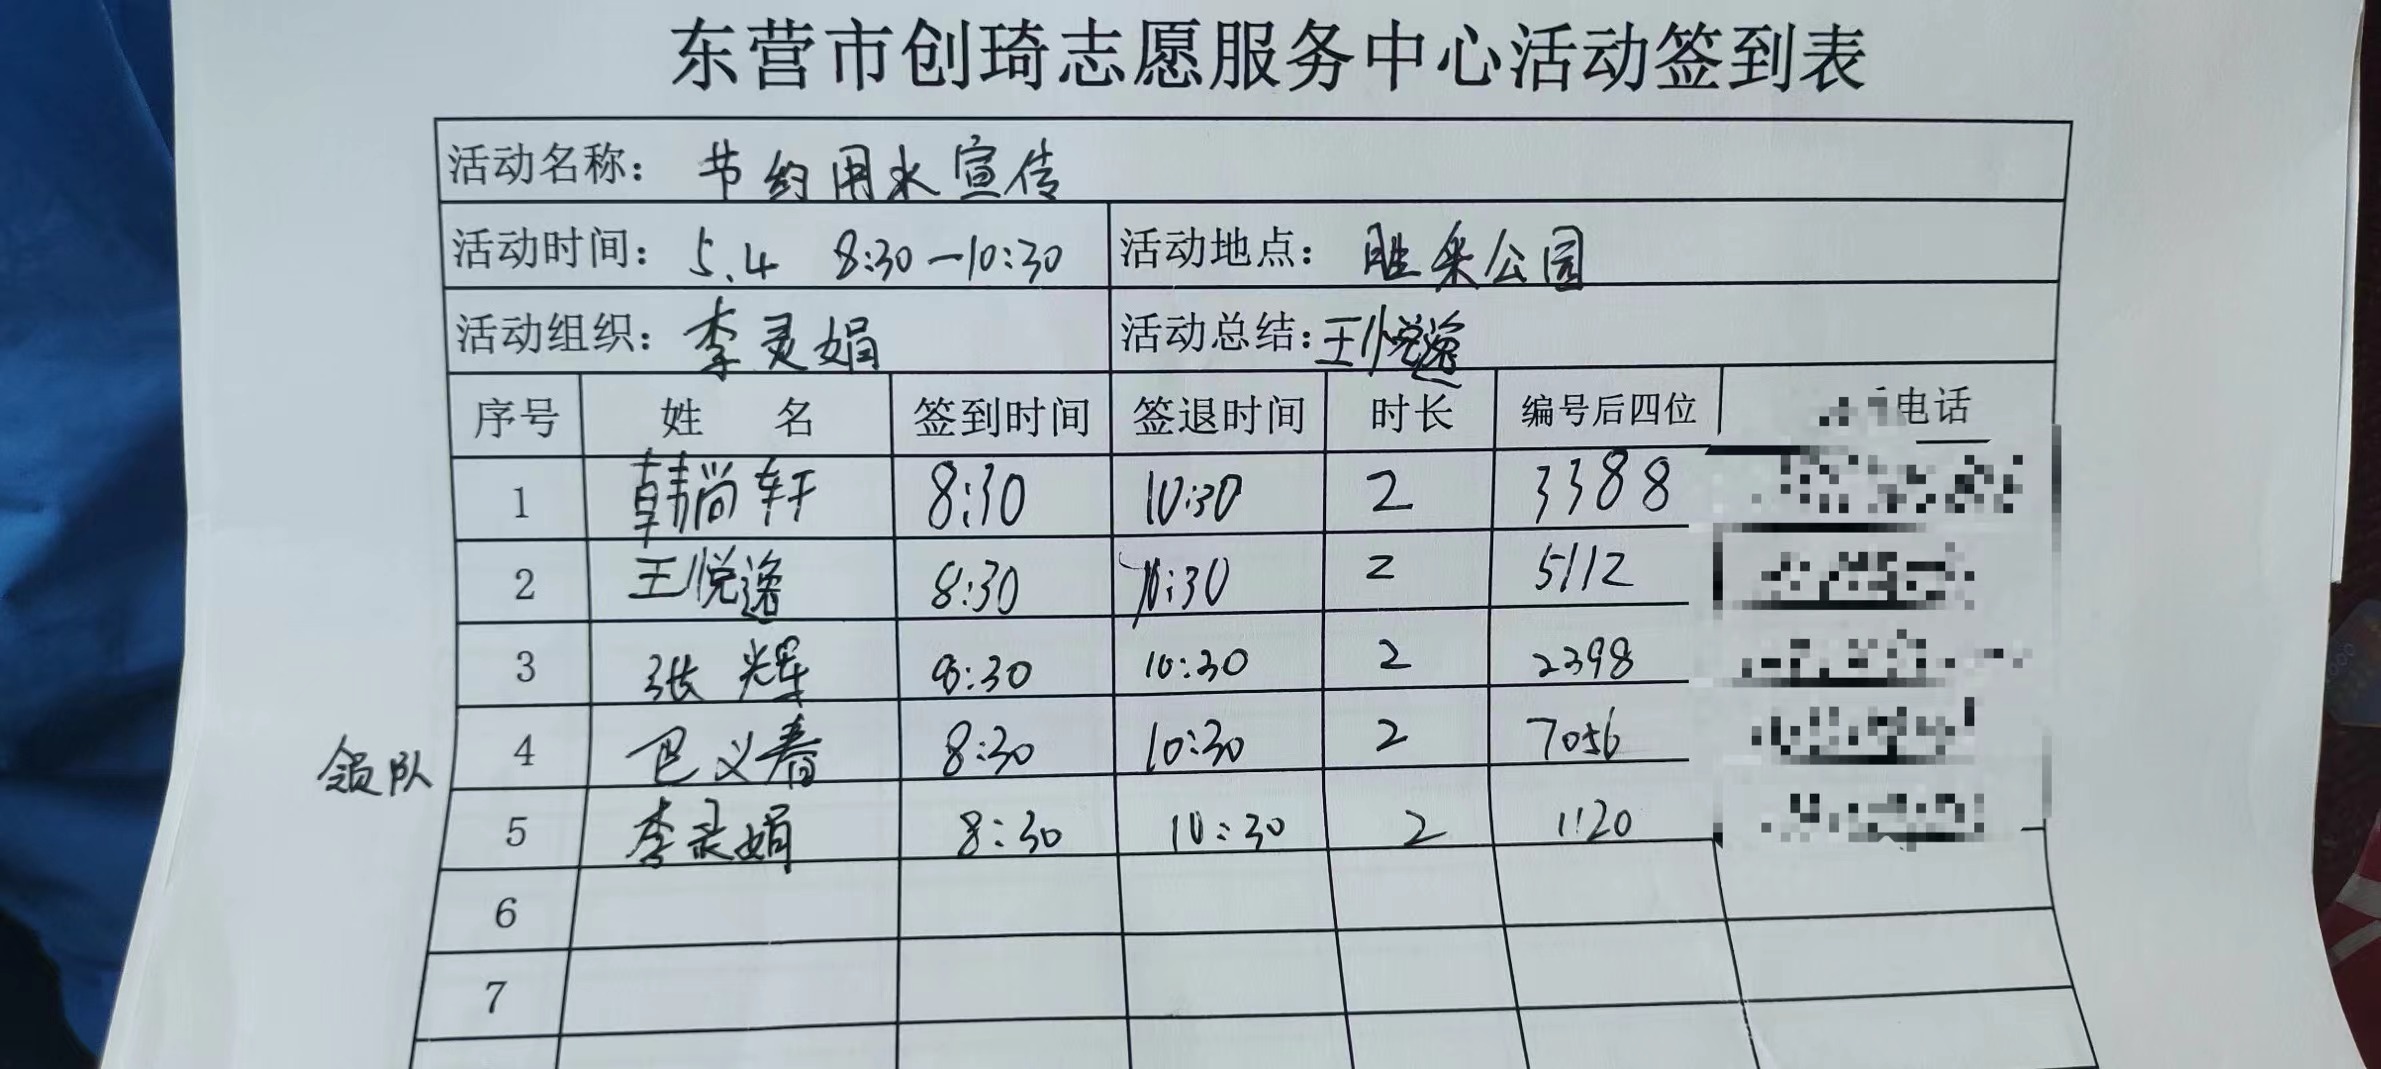 东营市创琦志愿服务中心活动签到表
活动名称: 节约用水宣传
活动时间: 5.4 8:30—10:30 活动地点: 胜采公园
活动组织: 李灵娟 活动总结: 王悦逸
序号 姓名 签到时间 签退时间 时长 编号后四位 电话
1 韩尚轩 8:30 10:30 2 3388
2 王悦逸 8:30 10:30 2 5112
3 张辉 8:30 10:30 2 2398
领队 4 义春 8:30 10:30 2 7056
5 李灵娟 8:30 10:30 2 1120
6
7